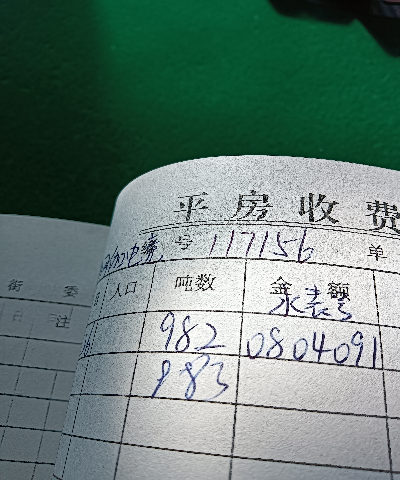 平房收费
号 117156 单
街 委 人口 吨数 金额
水表号
注 982 0804091
983